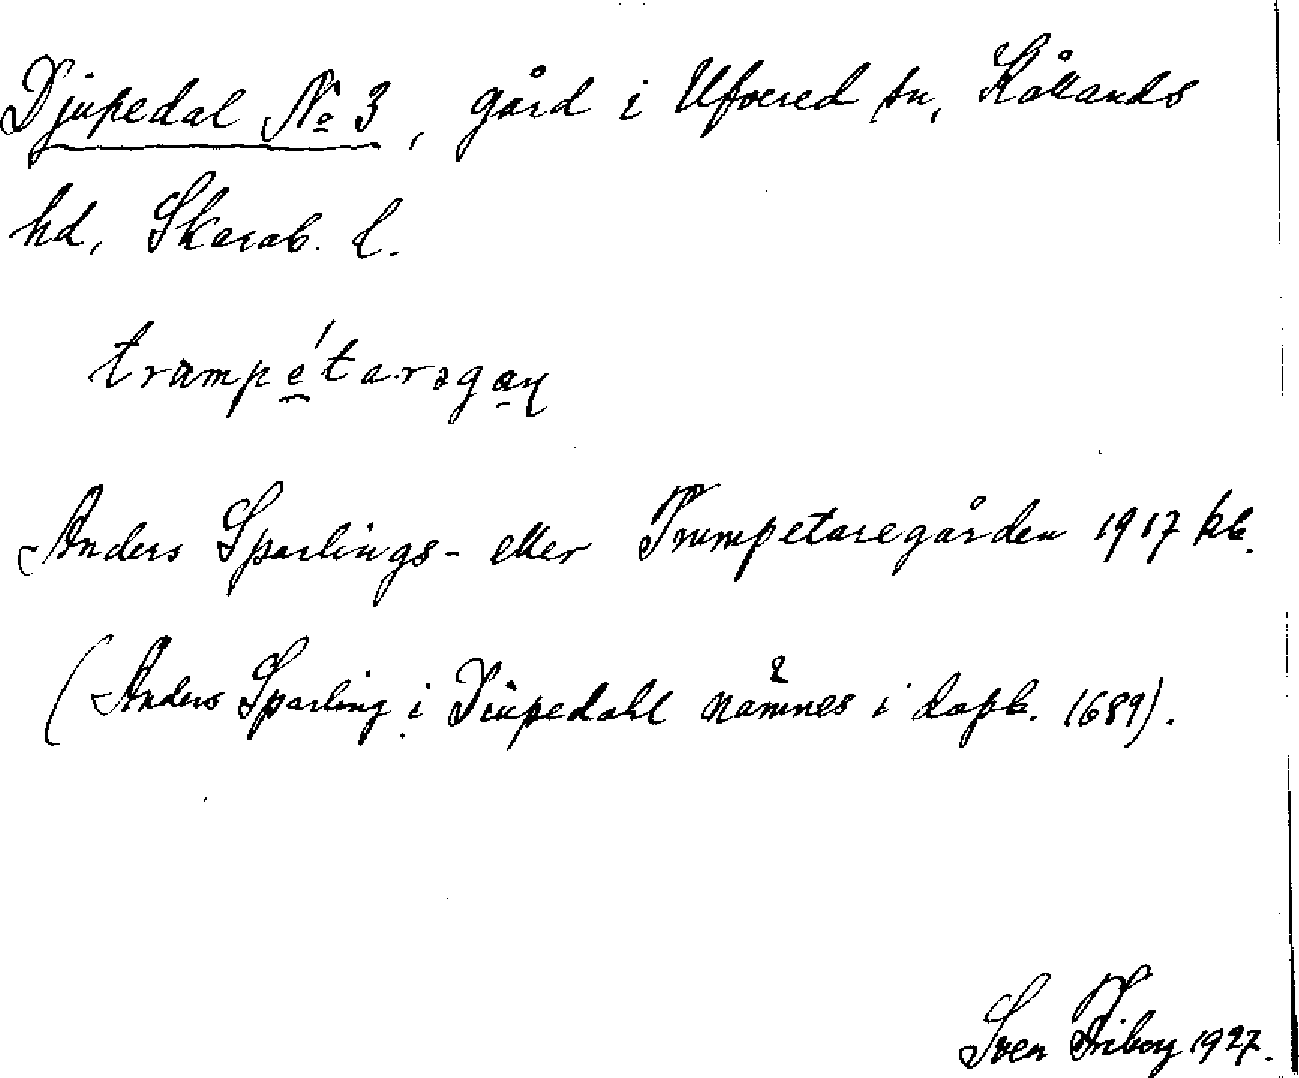 Djupedal No 3, gård i Ufvered sn, Kållands
hd, Skarab. l.
trampé̲tarəga̲ɳ
Anders Sparlings- eller Trumpetaregården 1917 kb.
(Anders Sparling i Diupedahl nämnes i dopb. 1689).
Sven Friberg 1927.